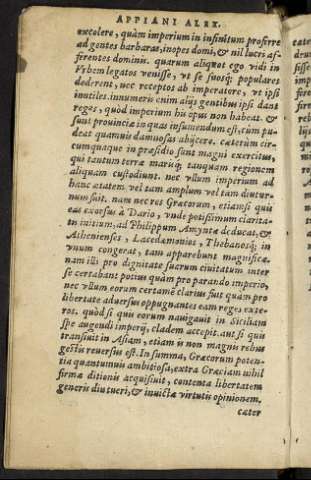 APPIANI ALEX.
excolere, quàm imperium in infinitum proferre
ad gentes barbaras, inopes domi, & nil lucri af-
ferentes dominis. quarum aliquot ego vidi in
Vrbem legatos venisse, vt se suosq; populares
dederent, nec receptos ab imperatore, vt ipsi
inutiles. innumeris enim alijs gentibus ipsi dant
reges, quòd imperium his opus non habeat. &
sunt prouinciæ in quas insumendum est, cum pu-
deat quamuis damnosas abijcere. cæterùm cir-
cumquaque in præsidio sunt magni exercitus,
qui tantum terra mariq; tanquam regionem
aliquam custodiunt. nec vllum imperium ad
hanc ætatem vel tam amplum vel tam diutur-
num fuit. nam nec res Græcorum, etiamsi quis
eas exorsus à Dario, vnde potissimum clarita-
tis initium, ad Philippum Amyntæ deducat, &
Athenienses, Lacedæmonios, Thebanosq; in
vnum congerat, tam apparebunt magnificæ.
nam illi pro dignitate suarum ciuitatum inter
se certabant potius quàm pro parando imperio,
nec vllum eorum certamē clarius fuit quàm pro
libertate aduersus oppugnantes eam reges exte-
ros. quòd si quis eorum nauigauit in Siciliam
spe augendi imperij, cladem accepit. aut si quis
transiuit in Asiam, etiam is non magnis rebus
gestis reuersus est. In summa, Græcorum poten-
tia quantumuis ambitiosa, extra Græciam nihil
firmæ ditionis acquisiuit, contenta libertatem
generis diu tueri, & inuictæ virtutis opinionem.
cæter